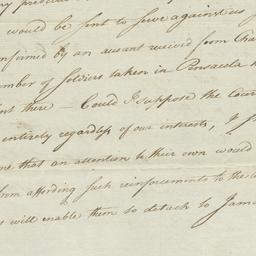 would be sent to serve against us
confirmed by an account received from Cha
number of Soldiers taken in Pensacola h
there — Could I suppose the Cour
entirely regardless of our interests, I s
that an attention to their own would
from affording such reinforcements to the
will enable them to detach to Jama